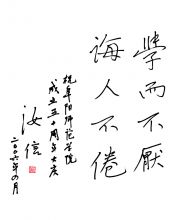 學而不厭
誨人不倦
祝阜阳师范学院
成立五十周年大庆
汝信
二〇〇六年〇月